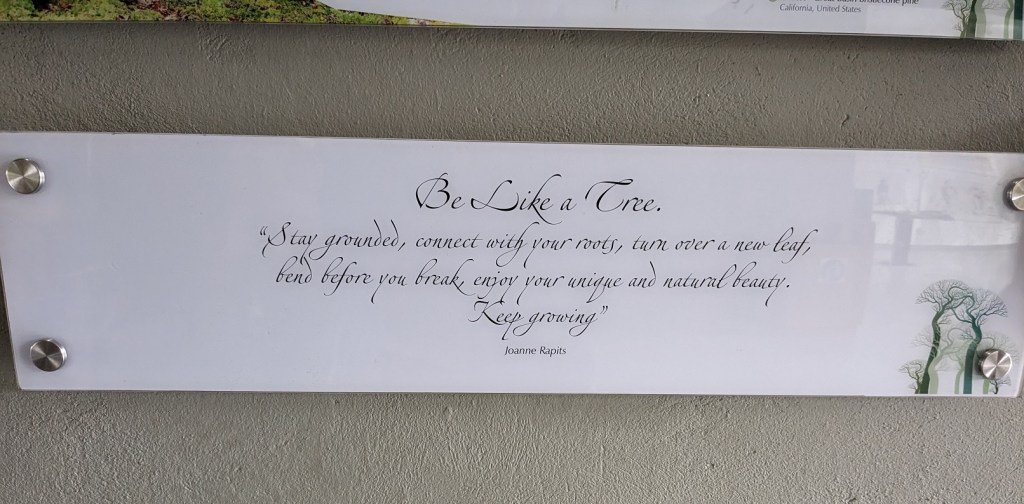 bristlecone pine
California, United States
Be Like a Tree.
“Stay grounded, connect with your roots, turn over a new leaf,
bend before you break, enjoy your unique and natural beauty.
Keep growing”
Joanne Rapits